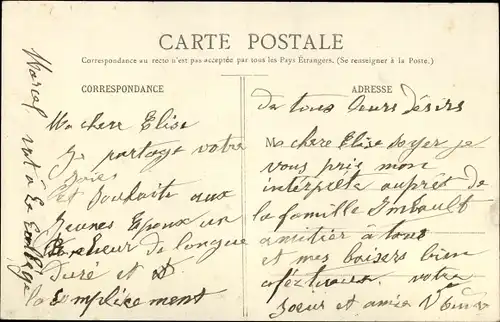 CARTE POSTALE
Correspondance au recto n'est pas acceptée par tous les Pays Étrangers. (Se renseigner à la Poste.)
CORRESPONDANCE
ADRESSE
Marcel vat à
Ma chere Elise
Je partage votre
Joies
et Souhaite aux
Jeunes Epoux un
Bonheur de longue
Duré et
la complicement
de tous leurs désirs
Ma chere Elise soyer je
vous pris mon
interprète auprêt de
la famille Imbault
amitier à tous
et mes baisers bien
votre
Soeur et amie